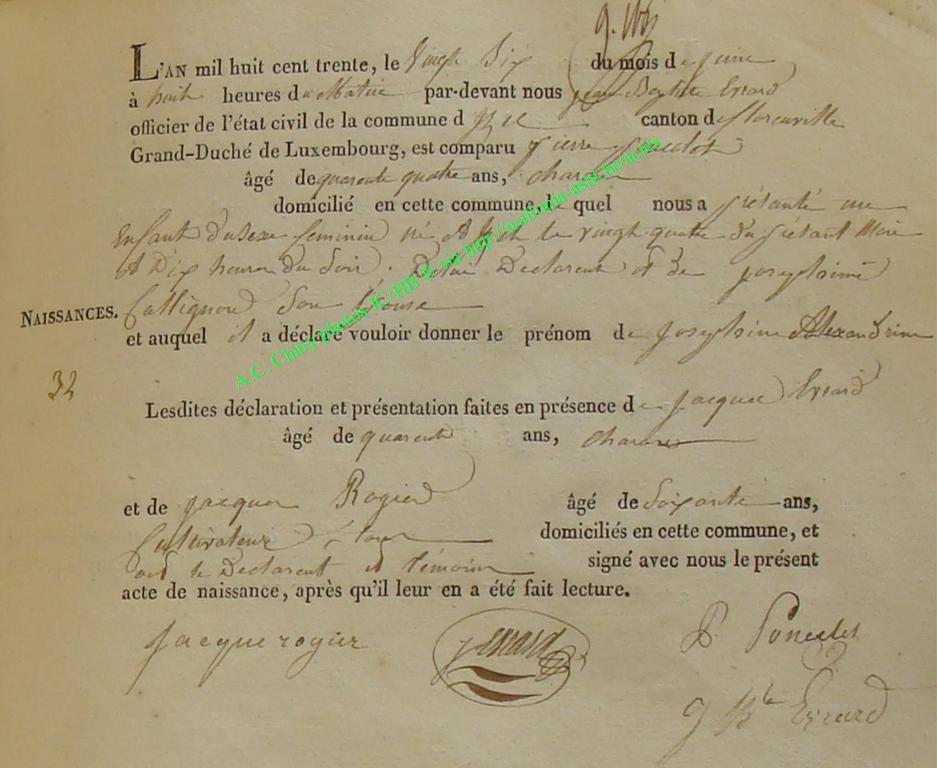 L'AN mil huit cent trente, le vingt Six du mois de juin
à huit heures du Matin par-devant nous jean Bptste Evrard
officier de l'état civil de la commune d canton de florenville
Grand-Duché de Luxembourg, est comparu pierre
âgé de quarente quatre ans,
domicilié en cette commune, le quel nous a présanté un
Enfant du sexe feminin né le vingt quatre du présant Mois
A Dix heures du Soir, Declarent et de josephine
Collignon Son Epouse
NAISSANCES. et auquel il a déclaré vouloir donner le prénom de josephine Alexandrine
32
Lesdites déclaration et présentation faites en présence de jacque Evrard
âgé de quarente ans,
et de jacque Rogier âgé de Soixante ans,
Cultivateur domiciliés en cette commune, et
le Declarent et témoins signé avec nous le présent
acte de naissance, après qu'il leur en a été fait lecture.
jacque rogier jevrard P. Poncelet
J Bte Evrard
A.C. Chiny photos JC/HB